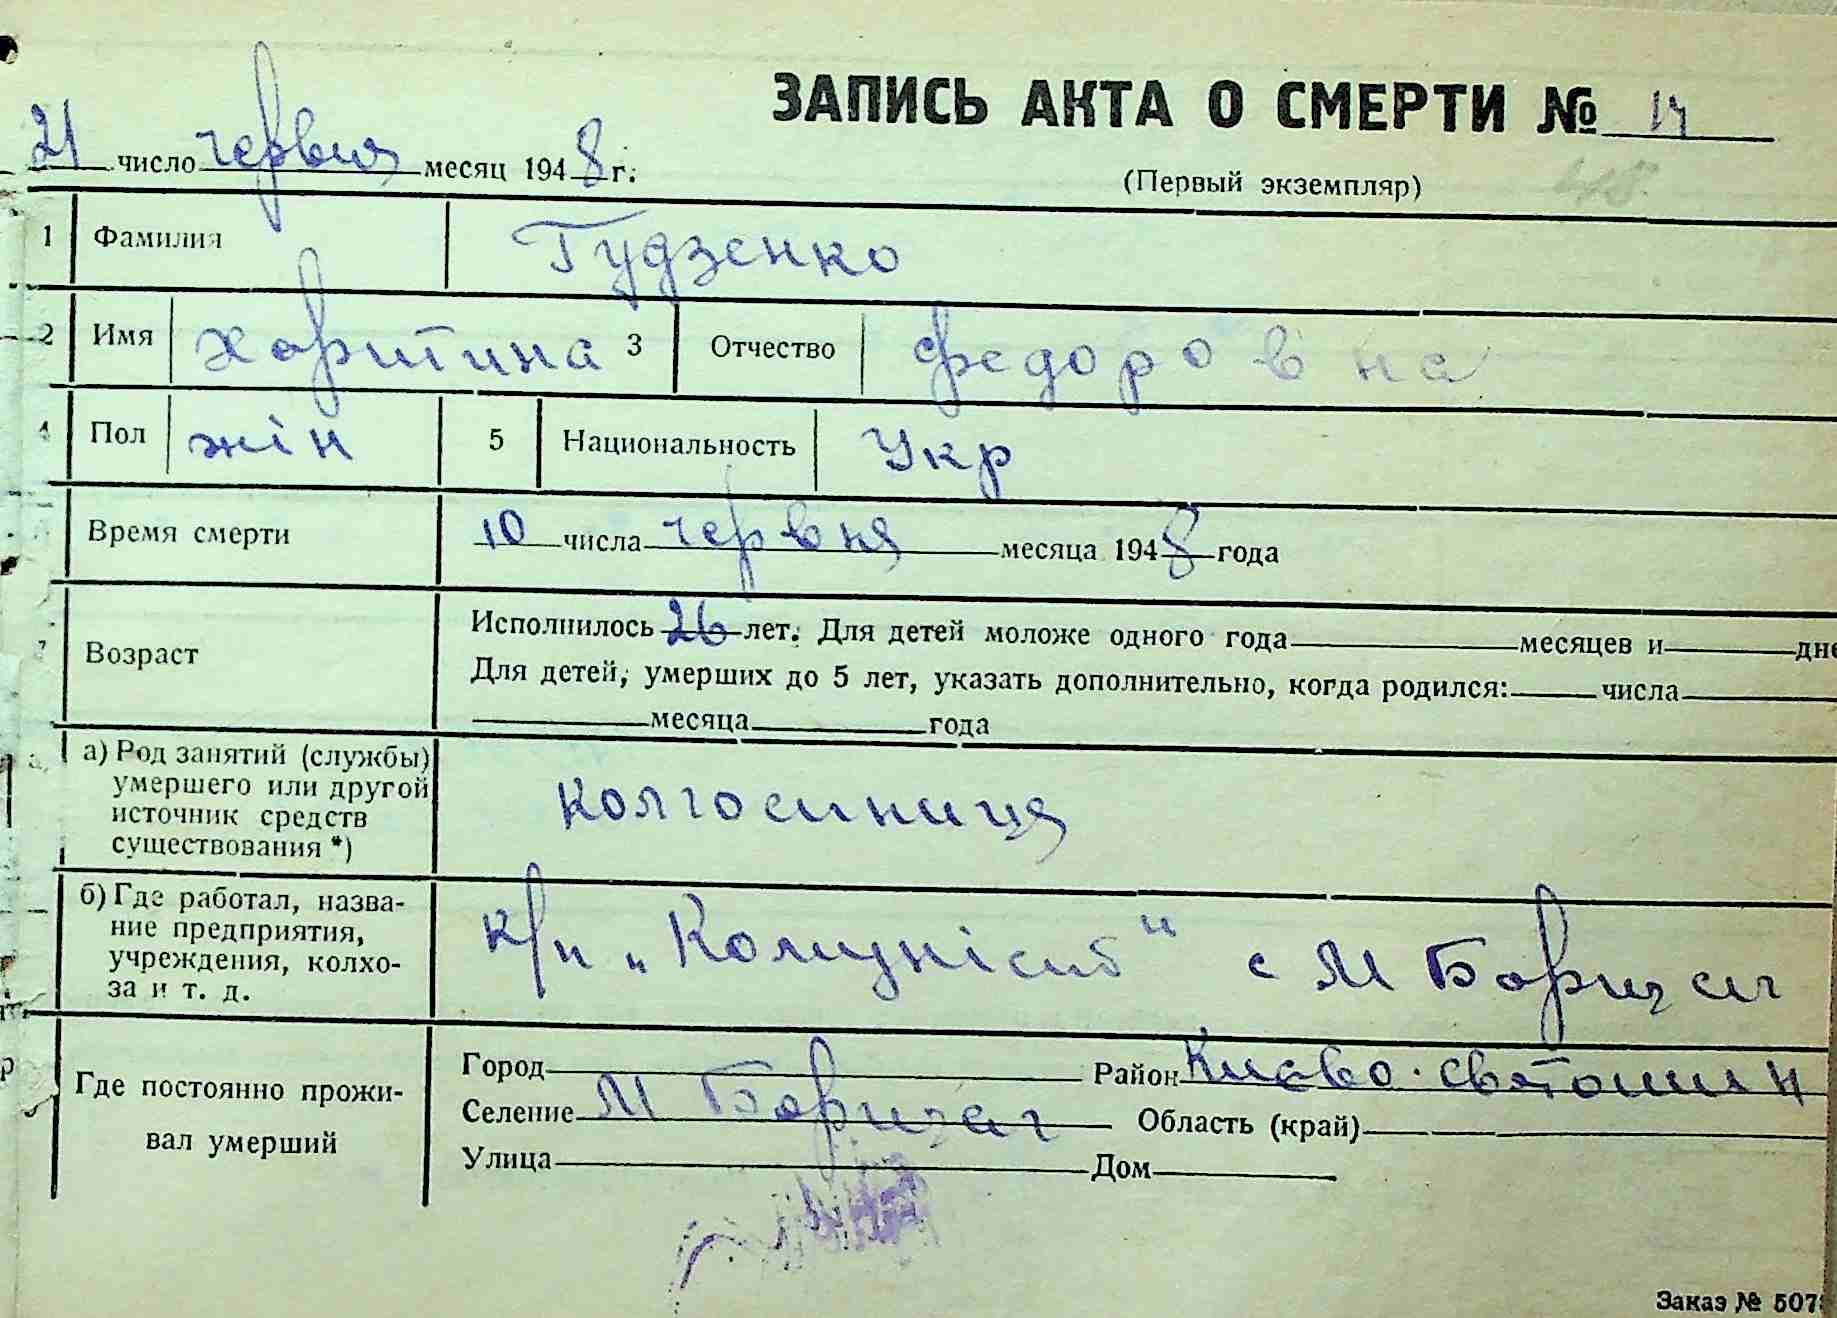 ЗАПИСЬ АКТА О СМЕРТИ № 14
21 число червня месяц 1948 г.
(Первый экземпляр)
1 Фамилия Гудзенко
2 Имя Харитина 3 Отчество Федоровна
4 Пол жін 5 Национальность Укр
Время смерти 10 числа червня месяца 1948 года
7 Возраст
Исполнилось 26 лет. Для детей моложе одного года месяцев и дне
Для детей, умерших до 5 лет, указать дополнительно, когда родился: числа
месяца года
а) Род занятий (службы)
умершего или другой
источник средств
существования *)
колгоспниця
б) Где работал, назва-
ние предприятия,
учреждения, колхо-
за и т. д.
"Комуніст" с М Борщаг
Где постоянно прожи-
вал умерший
Город Район Києво-святошин
Селение М Борщаг Область (край)
Улица Дом
Заказ № 507